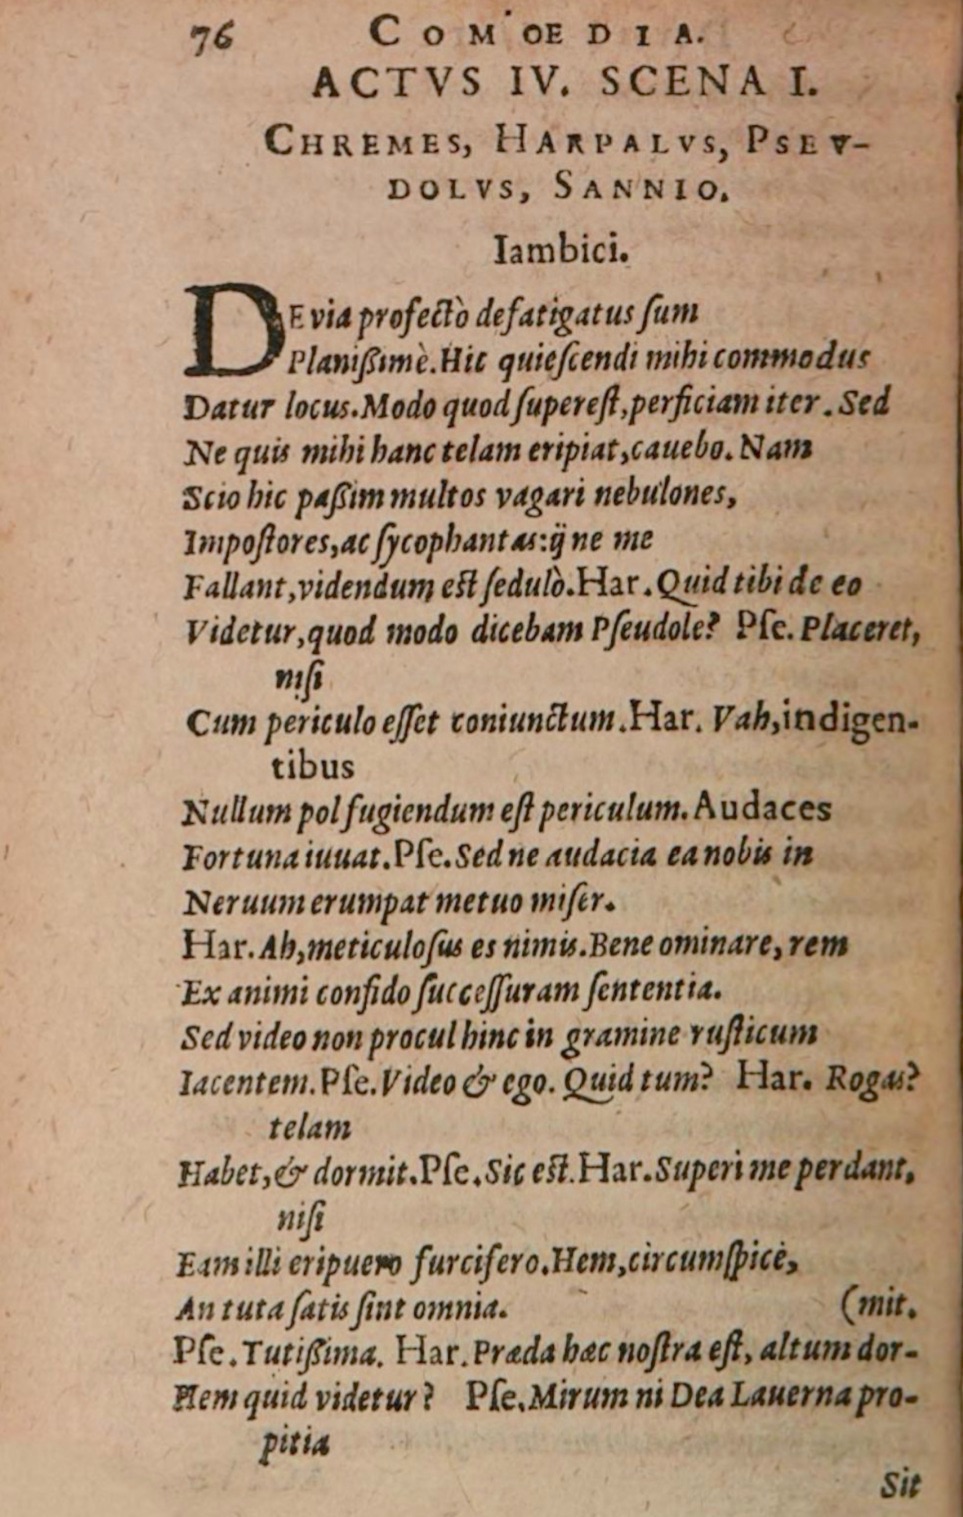 76 COMOEDIA.
ACTVS IV. SCENA I.
CHREMES, HARPALVS, PSEV-
DOLVS, SANNIO.
Iambici.
DE via profectò defatigatus ſum
Planiſſimè. Hic quieſcendi mihi commodus
Datur locus. Modo quod ſupereſt, perficiam iter. Sed
Ne quis mihi hanc telam eripiat, cauebo. Nam
Scio hic paſſim multos vagari nebulones,
Impoſtores, ac ſycophantas: ij ne me
Fallant, videndum eſt ſedulò. Har. Quid tibi de eo
Videtur, quod modo dicebam Pſeudole? Pſe. Placeret,
niſi
Cum periculo eſſet coniunctum. Har. Vah, indigen-
tibus
Nullum pol fugiendum eſt periculum. Audaces
Fortuna iuuat. Pſe. Sed ne audacia ea nobis in
Neruum erumpat metuo miſer.
Har. Ah, meticuloſus es nimis. Bene ominare, rem
Ex animi confido ſucceſſuram ſententia.
Sed video non procul hinc in gramine ruſticum
Iacentem. Pſe. Video & ego. Quid tum? Har. Rogas?
telam
Habet, & dormit. Pſe. Sic eſt. Har. Superi me perdant,
niſi
Eam illi eripuero furcifero. Hem, circumſpice,
An tuta ſatis ſint omnia. (mit.
Pſe. Tutiſſima. Har. Præda hæc noſtra eſt, altum dor-
Hem quid videtur? Pſe. Mirum ni Dea Lauerna pro-
pitia
Sit